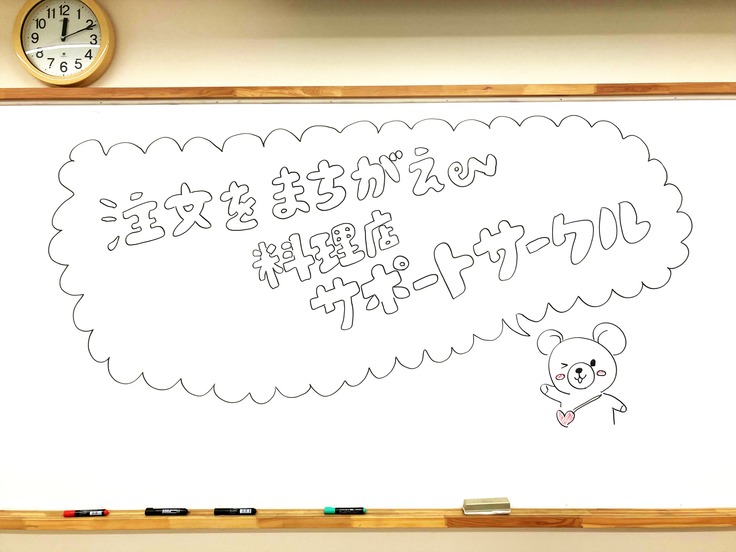 注文をまちがえる
料理店
サポートサークル
12
1
2
3
4
5
6
7
8
9
10
11